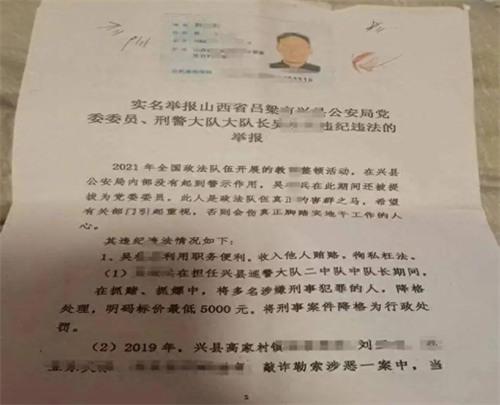 实名举报山西省吕梁市兴县公安局党
委委员、刑警大队大队长吴 违纪违法的
举报
2021 年全国政法队伍开展的教 整顿活动，在兴县
公安局内部没有起到警示作用，吴 兵在此期间还被提
拔为党委委员。此人是政法队伍真 的害群之马，希望
有关部门引起重视，否则会伤真正脚踏实地干工作的人
心。
其违纪违法情况如下：
1、吴 利用职务便利，收入他人贿赂，徇私枉法。
（1） 在担任兴县巡警大队二中队中队长期间，
在抓赌、抓嫖中，将多名涉嫌刑事犯罪的人，降格
处理，明码标价最低 5000 元，将刑事案件降格为行政处
罚。
（2）2019 年，兴县高家村镇 刘
敲诈勒索涉恶一案中，当